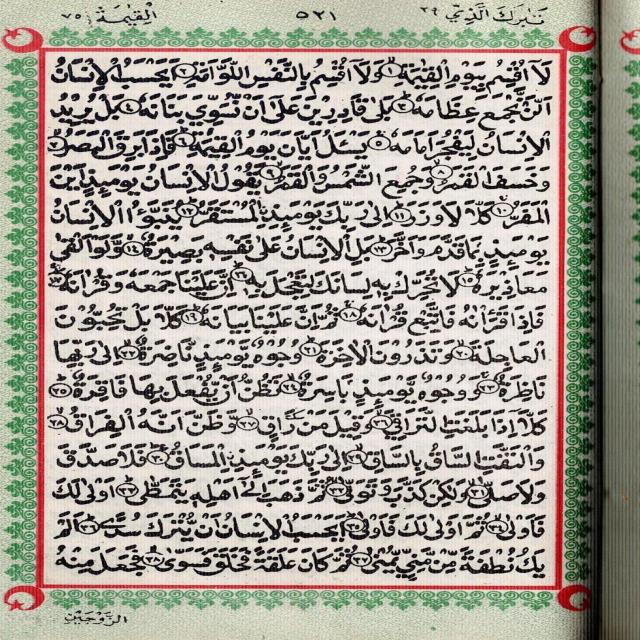 تَبٰرَكَ الَّذِي ٢٩ ٥٢١ الْقِيٰمَة ٧٥
لَآ اُقْسِمُ بِيَوْمِ الْقِيٰمَةِ ١ وَلَآ اُقْسِمُ بِالنَّفْسِ اللَّوَّامَةِ ٢ اَيَحْسَبُ الْاِنْسَانُ
اَلَّنْ نَّجْمَعَ عِظَامَهٗ ٣ بَلٰى قَادِرِيْنَ عَلٰٓى اَنْ نُّسَوِّيَ بَنَانَهٗ ٤ بَلْ يُرِيْدُ
الْاِنْسَانُ لِيَفْجُرَ اَمَامَهٗ ٥ يَسْئَلُ اَيَّانَ يَوْمُ الْقِيٰمَةِ ٦ فَاِذَا بَرِقَ الْبَصَرُ ٧
وَخَسَفَ الْقَمَرُ ٨ وَجُمِعَ الشَّمْسُ وَالْقَمَرُ ٩ يَقُوْلُ الْاِنْسَانُ يَوْمَئِذٍ اَيْنَ
الْمَفَرُّ ١٠ كَلَّا لَا وَزَرَ ١١ اِلٰى رَبِّكَ يَوْمَئِذِ الْمُسْتَقَرُّ ١٢ يُنَبَّؤُا الْاِنْسَانُ
يَوْمَئِذٍ بِمَا قَدَّمَ وَاَخَّرَ ١٣ بَلِ الْاِنْسَانُ عَلٰى نَفْسِهٖ بَصِيْرَةٌ ١٤ وَّلَوْ اَلْقٰى
مَعَاذِيْرَهٗ ١٥ لَا تُحَرِّكْ بِهٖ لِسَانَكَ لِتَعْجَلَ بِهٖ ١٦ اِنَّ عَلَيْنَا جَمْعَهٗ وَقُرْاٰنَهٗ ١٧
فَاِذَا قَرَاْنٰهُ فَاتَّبِعْ قُرْاٰنَهٗ ١٨ ثُمَّ اِنَّ عَلَيْنَا بَيَانَهٗ ١٩ كَلَّا بَلْ تُحِبُّوْنَ
الْعَاجِلَةَ ٢٠ وَتَذَرُوْنَ الْاٰخِرَةَ ٢١ وُجُوْهٌ يَّوْمَئِذٍ نَّاضِرَةٌ ٢٢ اِلٰى رَبِّهَا
نَاظِرَةٌ ٢٣ وَوُجُوْهٌ يَّوْمَئِذٍۢ بَاسِرَةٌ ٢٤ تَظُنُّ اَنْ يُّفْعَلَ بِهَا فَاقِرَةٌ ٢٥
كَلَّآ اِذَا بَلَغَتِ التَّرَاقِيَ ٢٦ وَقِيْلَ مَنْ رَاقٍ ٢٧ وَّظَنَّ اَنَّهُ الْفِرَاقُ ٢٨
وَالْتَفَّتِ السَّاقُ بِالسَّاقِ ٢٩ اِلٰى رَبِّكَ يَوْمَئِذِ الْمَسَاقُ ٣٠ فَلَا صَدَّقَ
وَلَا صَلّٰى ٣١ وَلٰكِنْ كَذَّبَ وَتَوَلّٰى ٣٢ ثُمَّ ذَهَبَ اِلٰٓى اَهْلِهٖ يَتَمَطّٰى ٣٣ اَوْلٰى لَكَ
فَاَوْلٰى ٣٤ ثُمَّ اَوْلٰى لَكَ فَاَوْلٰى ٣٥ اَيَحْسَبُ الْاِنْسَانُ اَنْ يُّتْرَكَ سُدًى ٣٦ اَلَمْ
يَكُ نُطْفَةً مِّنْ مَّنِيٍّ يُّمْنٰى ٣٧ ثُمَّ كَانَ عَلَقَةً فَخَلَقَ فَسَوّٰى ٣٨ فَجَعَلَ مِنْهُ
الزَّوْجَيْنِ